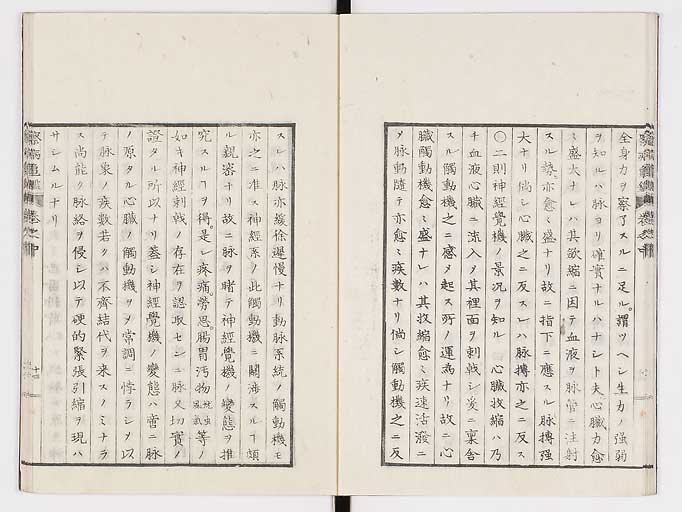 全身力ヲ察了スルニ足ル。謂ツヘシ生力ノ强弱
ヲ知ルハ脉ヨリ確實ナルハナシト夫心臓力愈
ミ盛大ナレハ其歛縮ニ因テ血液ヲ脉管ニ注射
スル勢亦愈ミ盛ナリ故ニ指下ニ應スル脉摶强
大ナリ倘シ心臓之ニ反スレハ脉摶亦之ニ反ス
〇二則神經覺機ノ景况ヲ知ル 心臓收縮ハ乃
チ血液心臓ニ流入ヲ其裡面ヲ刺戟シ爰ニ裏舎
スル觸動機之ニ感メ起ス所ノ運爲ナリ故ニ心
臓觸動機愈ミ盛ナレハ其收縮愈ミ疾速活潑ニ
メ脉動隨テ亦愈ミ疾數ナリ倘シ觸動機之ニ反
スレハ脉亦緩徐遲慢ナリ動脉系統ノ觸動機モ
亦之ニ准ス神經系ノ此觸動機ニ關渉スルヿ頗
ル親密ナリ故ニ脉ヲ睹テ神經覺機ノ變態ヲ推
究スルヿヲ得。是レ疼痛。勞思。腸胃汚物 等ノ
如キ神經刺戟ノ存在ヲ認取センニ脉又切實ノ
證タル所以ナリ蓋シ神經覺機ノ變態ハ啻ニ脉
ノ原タル心臓ノ觸動機ヲメ常調ニ悖ラシメ以
テ脉象ノ疾數若クハ不齊結代ヲ来スノミナラ
ス尚能ク脉絡ヲ侵シ以テ硬的緊張引縮ヲ現ハ
サシムルナリ